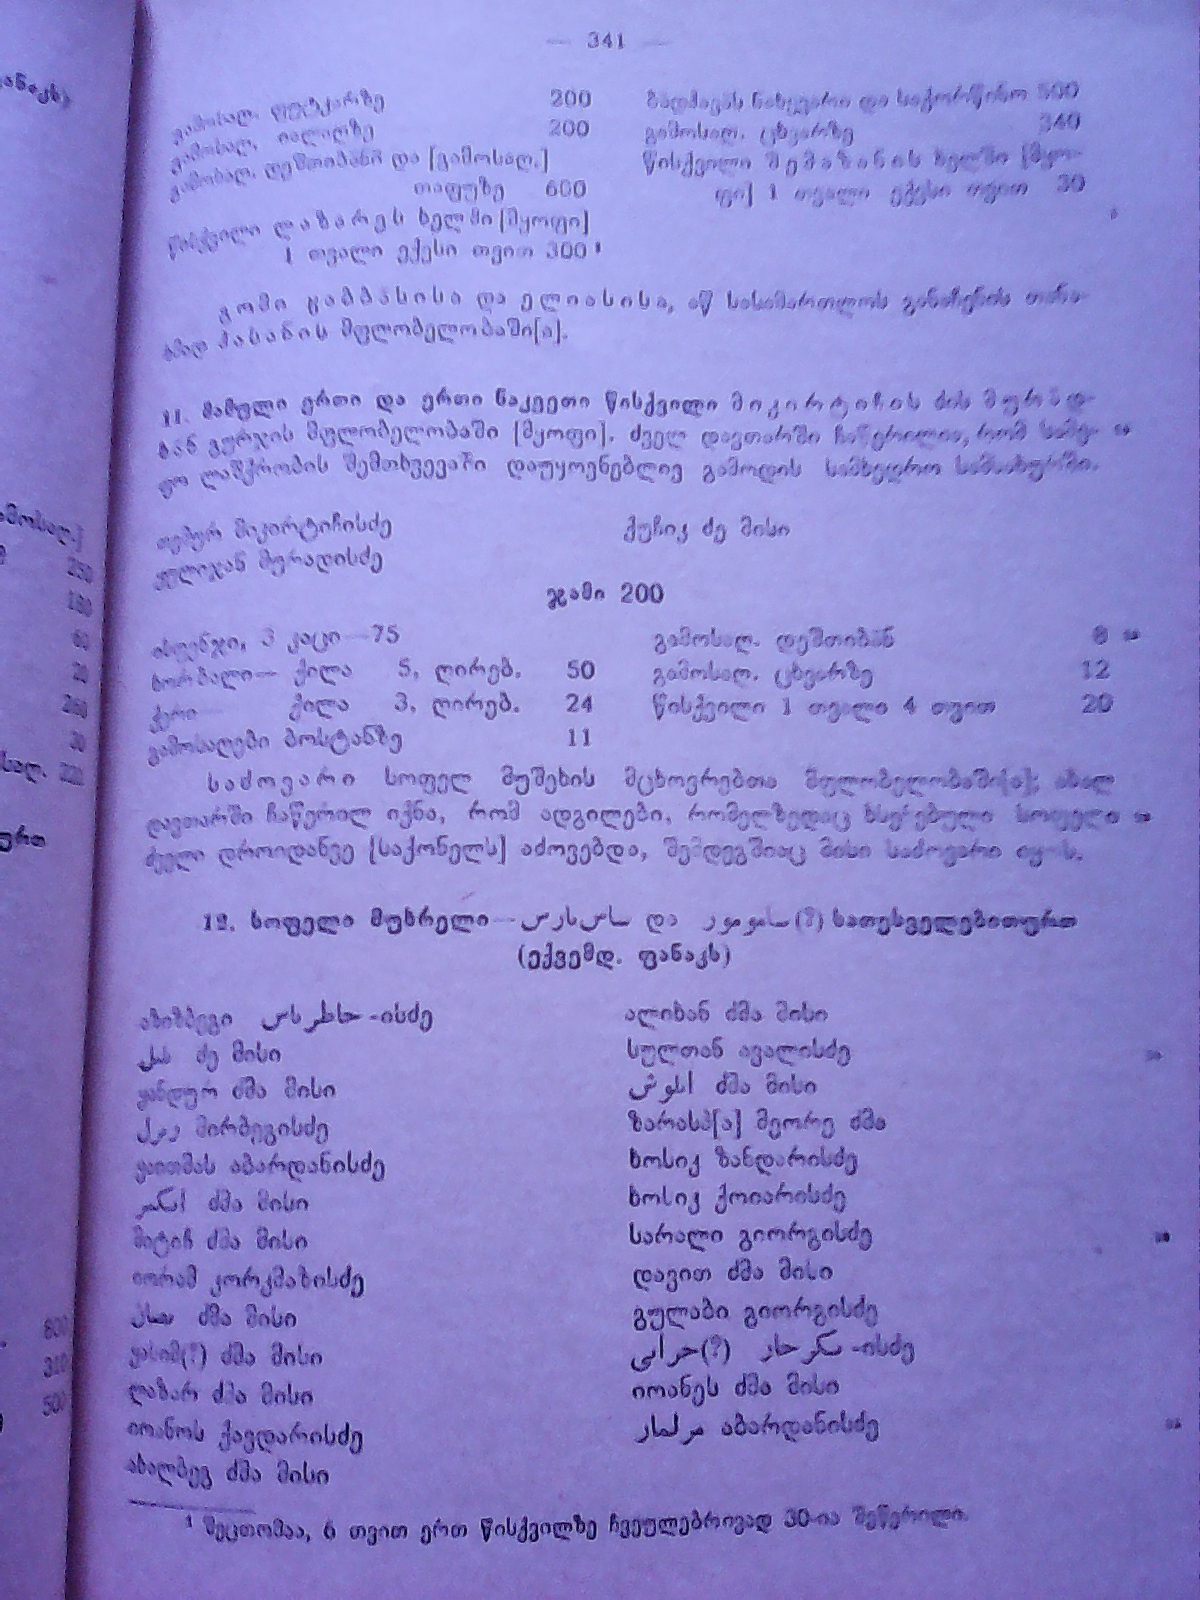 — 341 —
გამოსაღ. ფუტკარზე 200
გამოსაღ. იალაღზე 200
გამოსაღ. დეშთიბანზე და [გამოსაღ.]
თაფუზე 600
წისქვილი ლაზარეს ხელში [მყოფი]
1 თვალი ექვსი თვით 300¹
ბადჰავას ნახევარი და საქორწინო 500
გამოსაღ. ცხვარზე 340
წისქვილი შემაზანის ხელში [მყო-
ფი] 1 თვალი ექვსი თვით 30
გომი ყაბბასისა და ელიასისა, აწ სასამართლოს განაჩენის თანა-
ხმად ჰასანის მფლობელობაში[ა].
11. მამული ერთი და ერთი ნაკვეთი წისქვილი მიკირტიჩის ძის მურად-
ხან გურჯის მფლობელობაში [მყოფი]. ძველ დავთარში ჩაწერილია, რომ სამე-
ფო ლაშქრობის შემთხვევაში დაუყოვნებლივ გამოდის სამხედრო სამსახურში.
თემურ მიკირტიჩისძე
ყულიჯან მურადისძე
ქუჩიკ ძე მისი
ჯამი 200
ისფენჯი, 3 კაცი—75
ხორბალი— ქილა 5, ღირებ. 50
ქერი— ქილა 3, ღირებ. 24
გამოსაღები ბოსტანზე 11
გამოსაღ. დეშთიბან 8
გამოსაღ. ცხვარზე 12
წისქვილი 1 თვალი 4 თვით 20
საძოვარი სოფელ მუშეხის მცხოვრებთა მფლობელობაში[ა]; ახალ
დავთარში ჩაწერილ იქნა, რომ ადგილები, რომელზედაც ხსენებული სოფელი
ძველ დროიდანვე [საქონელს] აძოვებდა, შემდეგშიაც მისი საძოვარი იყოს.
12. სოფელი მუხრელი— და (?) სათესველებითურთ
(ექვემდ. ფანაკს)
აზიზბეგი -ისძე
ძე მისი
ყანდურ ძმა მისი
მირბეგისძე
ყაითმას აბარდანისძე
ძმა მისი
მიტიჩ ძმა მისი
იორამ კორკმაზისძე
ძმა მისი
ყასიმ(?) ძმა მისი
ლაზარ ძმა მისი
იოანოს ქავდარისძე
ახალბეგ ძმა მისი
ალიხან ძმა მისი
სულთან ავალისძე
ძმა მისი
ზარასპ[ა] მეორე ძმა
ხოსიკ ზანდარისძე
ხოსიკ ქოიარისძე
სარალი გიორგისძე
დავით ძმა მისი
გულაბი გიორგისძე
(?) -ისძე
იოანეს ძმა მისი
აბარდანისძე
¹ შეცთომაა, 6 თვით ერთ წისქვილზე ჩვეულებრივად 30-ია შეწერილი.